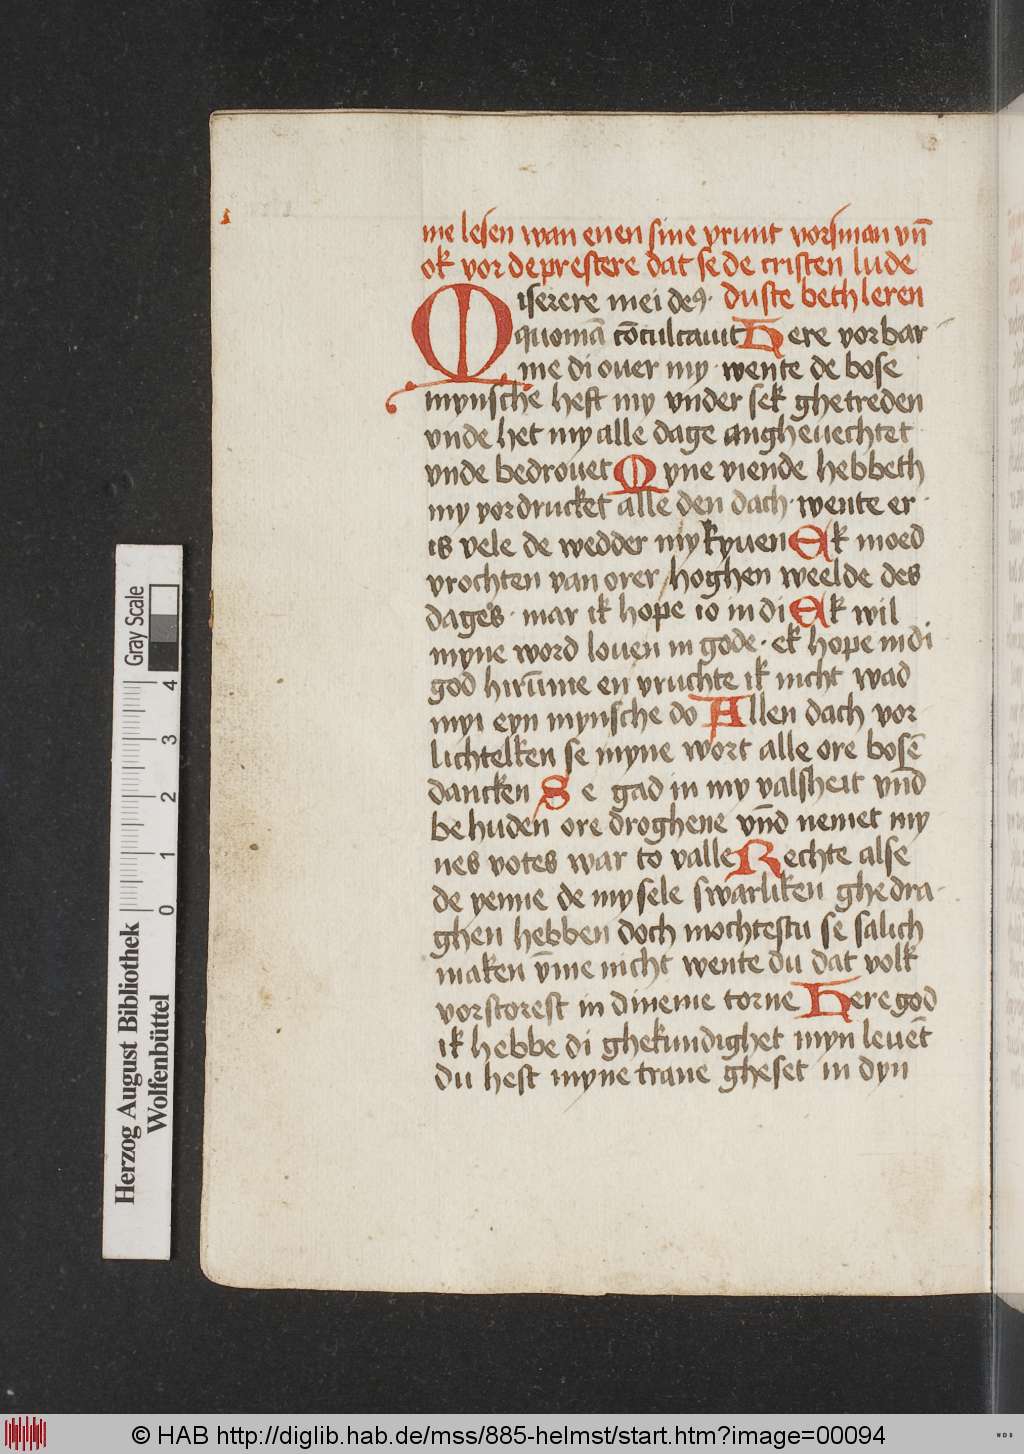 me lesen wan enen sine vrunt vorsman vn̄
ok vor de prestere dat se de cristen lude
Miserere mei deꝰ · duste beth leren
quoniā cōculcauit Here vorbar
me di ouer my · wente de bose
mynsche heft my vnder sek ghetreden
vnde het my alle dage angheuechtet
vnde bedrouet Myne viende hebbeth
my vordrucket alle den dach · wente er ·
is vele de wedder my kyuen Ek moed
vrochten van orer hoghen weelde des
dages · mar ik hope io in di Ek wil
myne word louen in gode · ek hope in di
god hirūme en vruchte ik nicht wad
myi eyn mynsche do Allen dach vor
lichtelken se myne wort alle ore bosē
dancken Se gad in my valsheit vn̄d
behuden ore droghene vn̄d nemet my
nes votes war to valle Rechte alse
de yenne de my sele swarliken ghedra-
ghen hebben doch mochtestu se salich
maken v̄me nicht wente du dat volk
vorstorest in dineme torne Here god
ik hebbe di ghekundighet myn leuēt
du hest myne trane gheset in dyn
Gray Scale
4
3
2
1
0
Herzog August Bibliothek
Wolfenbüttel
© HAB http://diglib.hab.de/mss/885-helmst/start.htm?image=00094